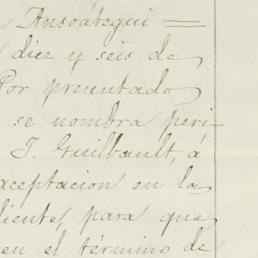 Ansoátegui =
diez y seis de
Por presentado
se nombra peri-
J. Guilbault, á
aceptacion en la
diente, para que
en el término de